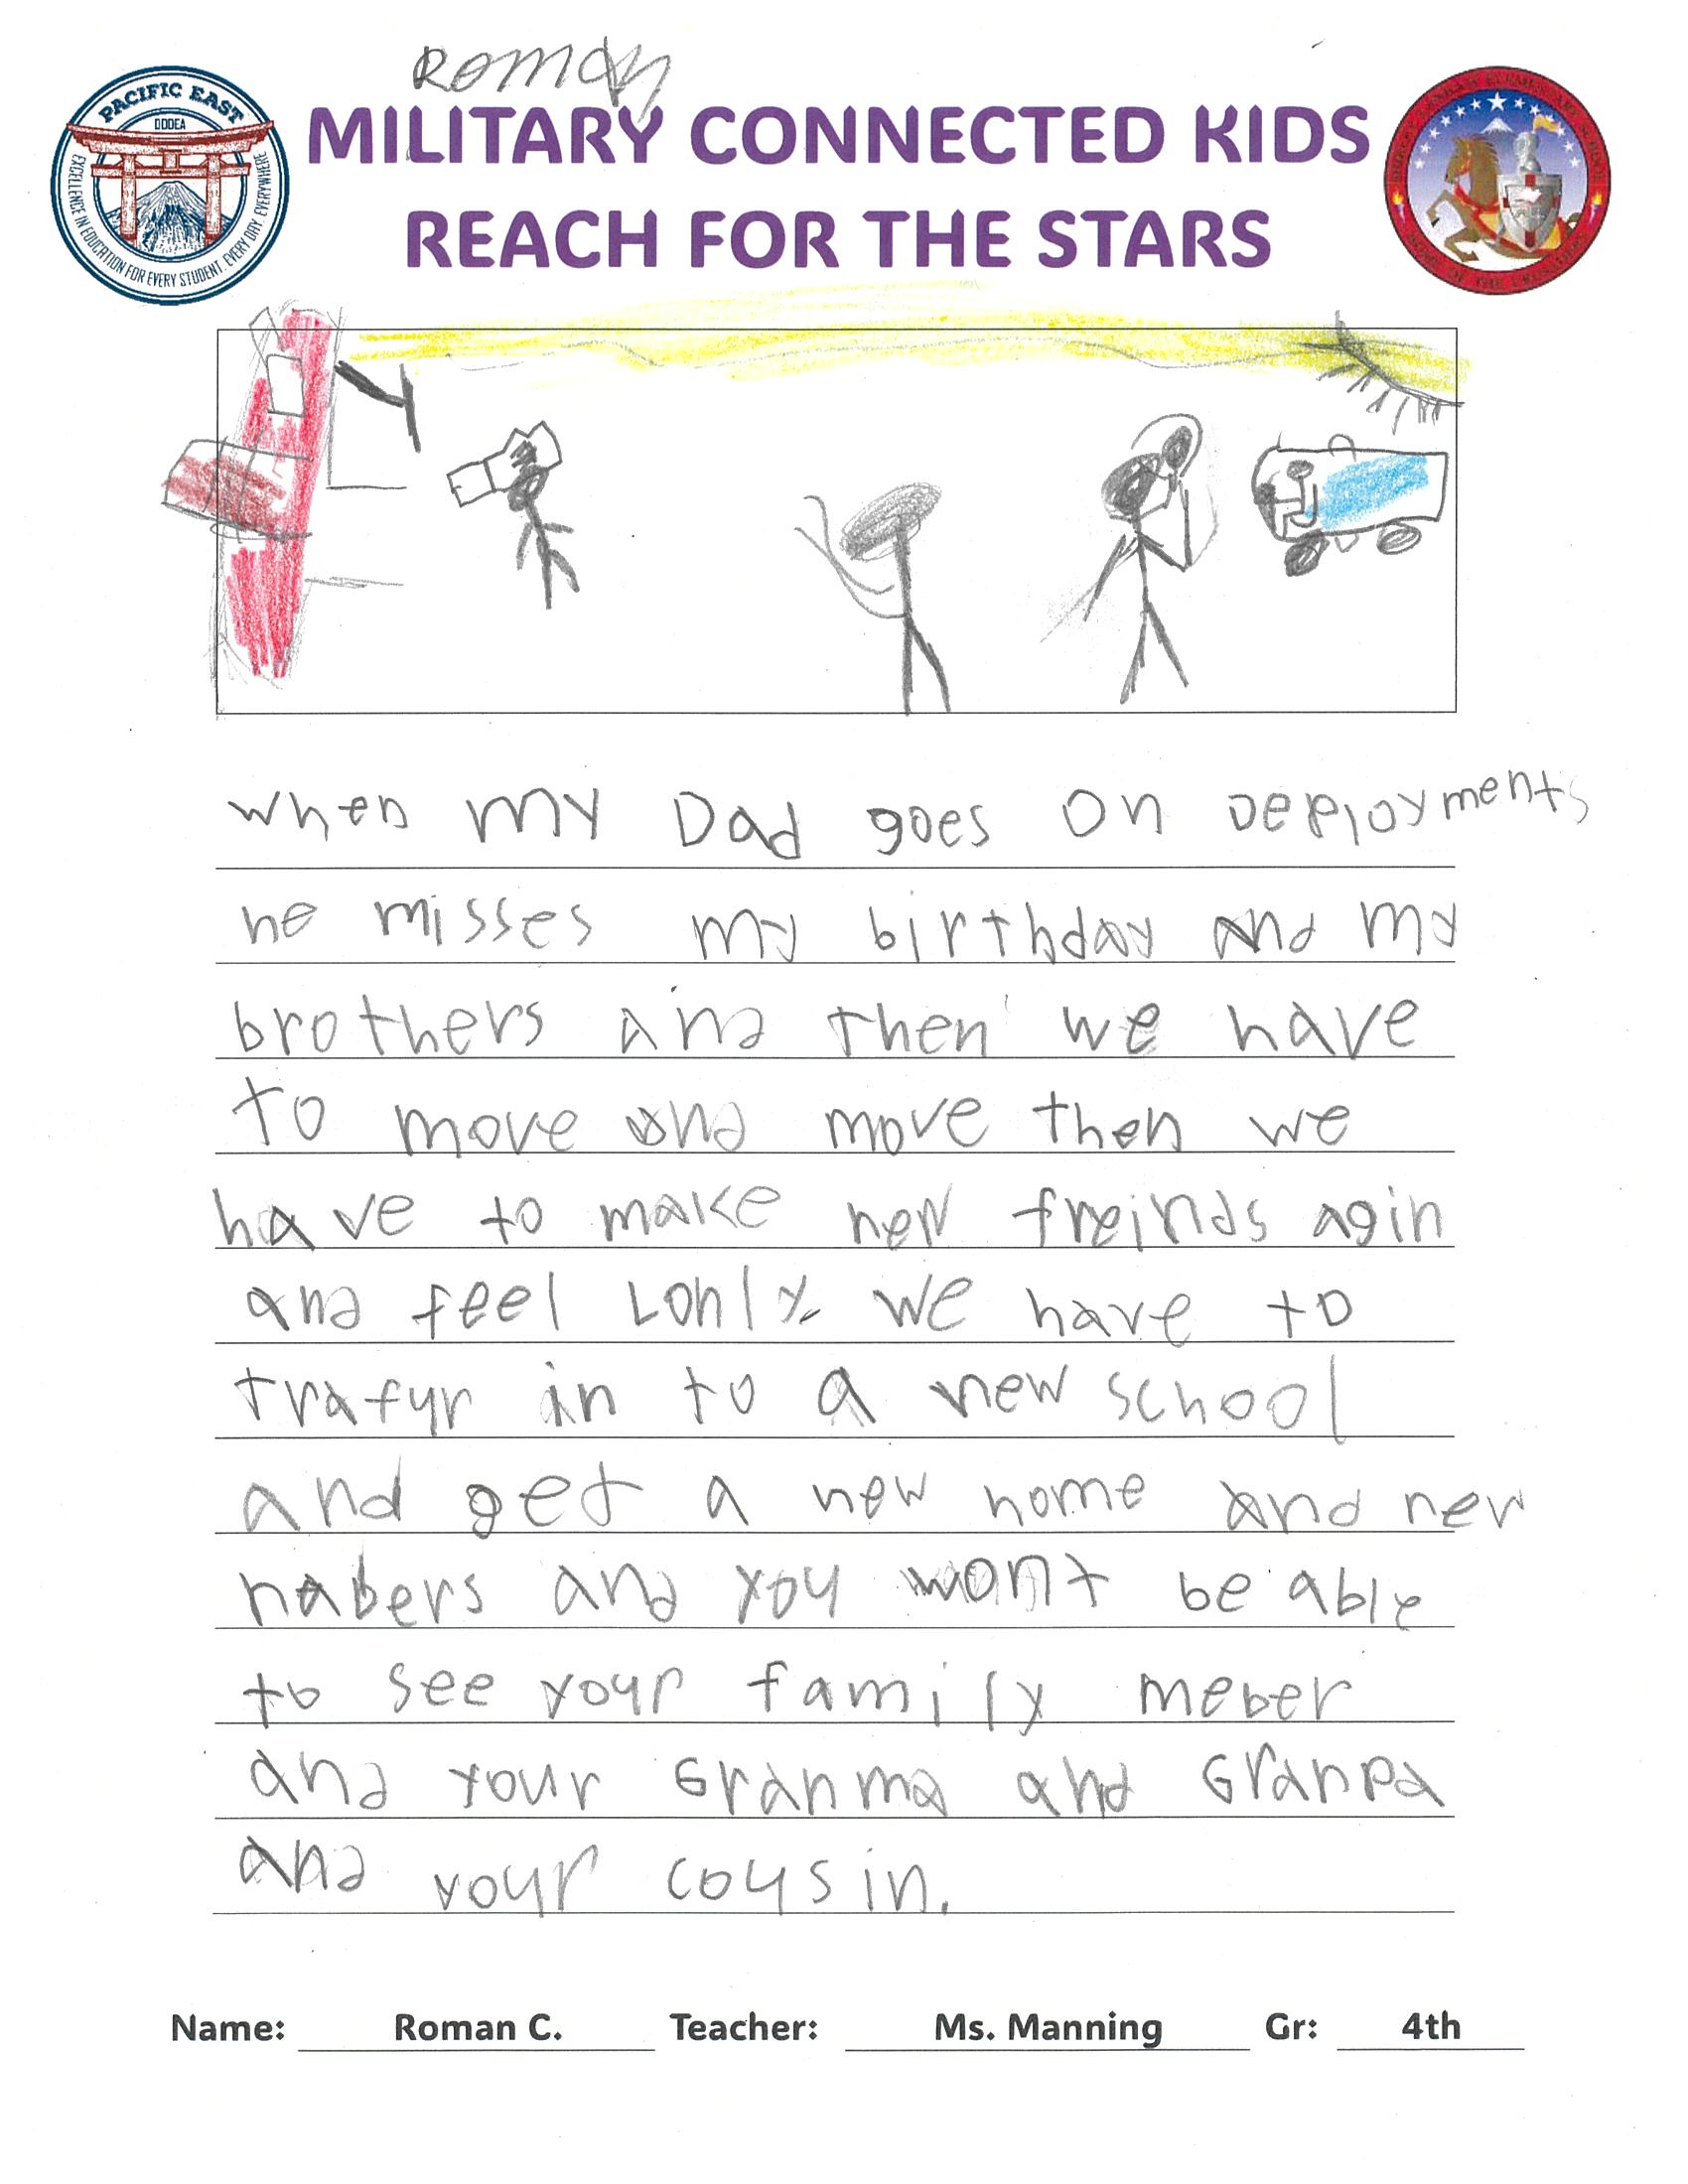 Roman
MILITARY CONNECTED KIDS
REACH FOR THE STARS
PACIFIC EAST
DODEA
EXCELLENCE IN EDUCATION FOR EVERY STUDENT, EVERY DAY, EVERYWHERE
when my Dad goes on Deployments
he misses my birthday and my
brothers and then we have
to move and move then we
have to make new freinds agin
and feel Lonly. we have to
trafyr in to a new school
and get a new home and new
nabers and you wont be able
to see your family meber
and your Granma and Granpa
and your cousin.
Name: Roman C. Teacher: Ms. Manning Gr: 4th